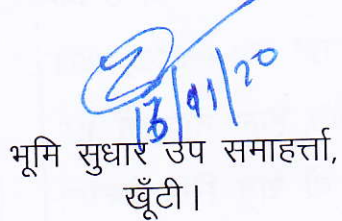 13/11/20
भूमि सुधार उप समाहर्त्ता,
खूँटी।